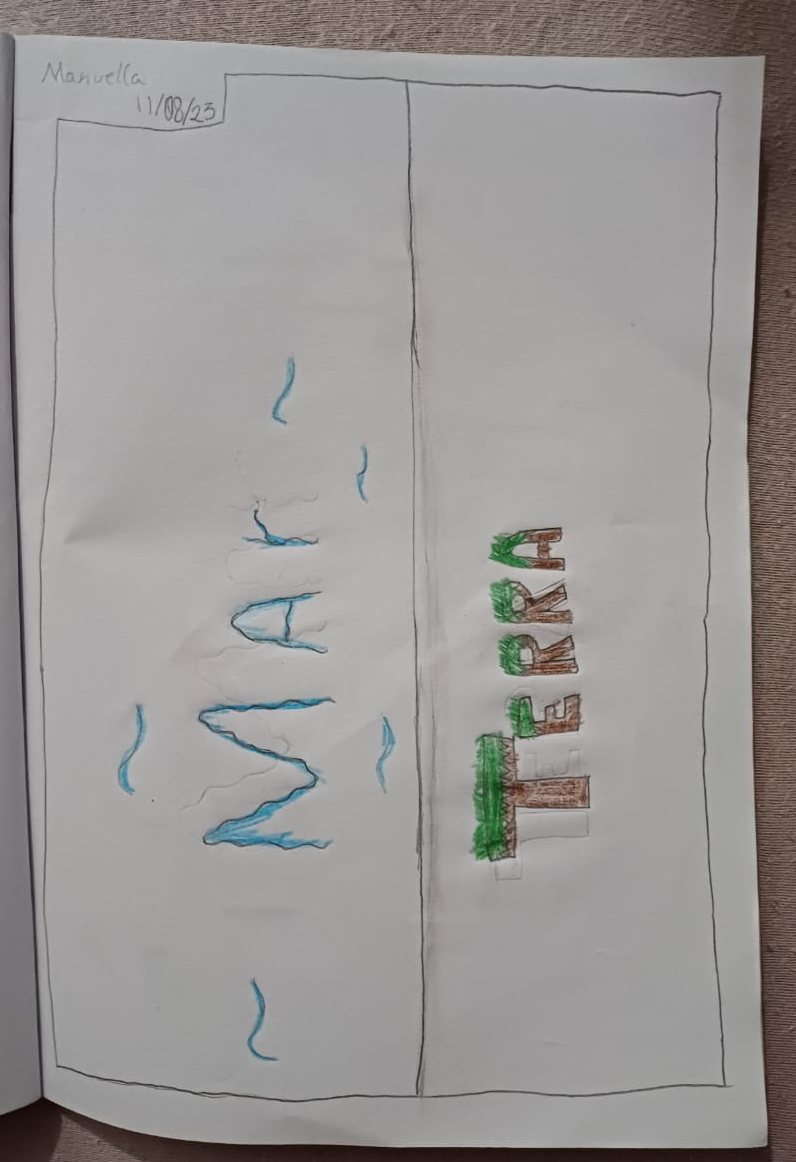 Manuella
11/08/23
MAr
TERRA